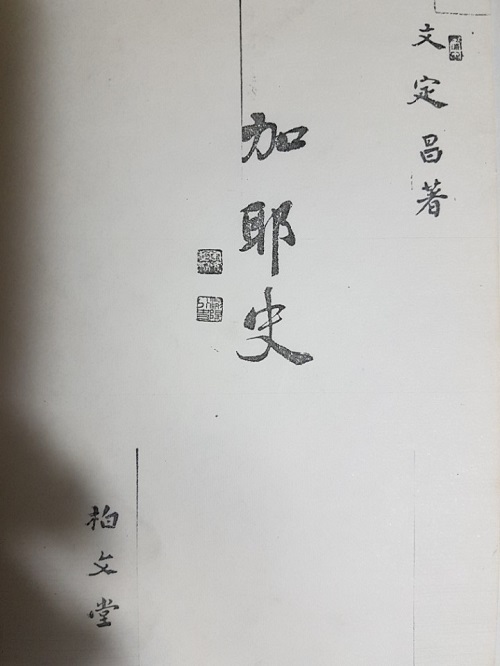 文定昌著
加耶史
柏文堂